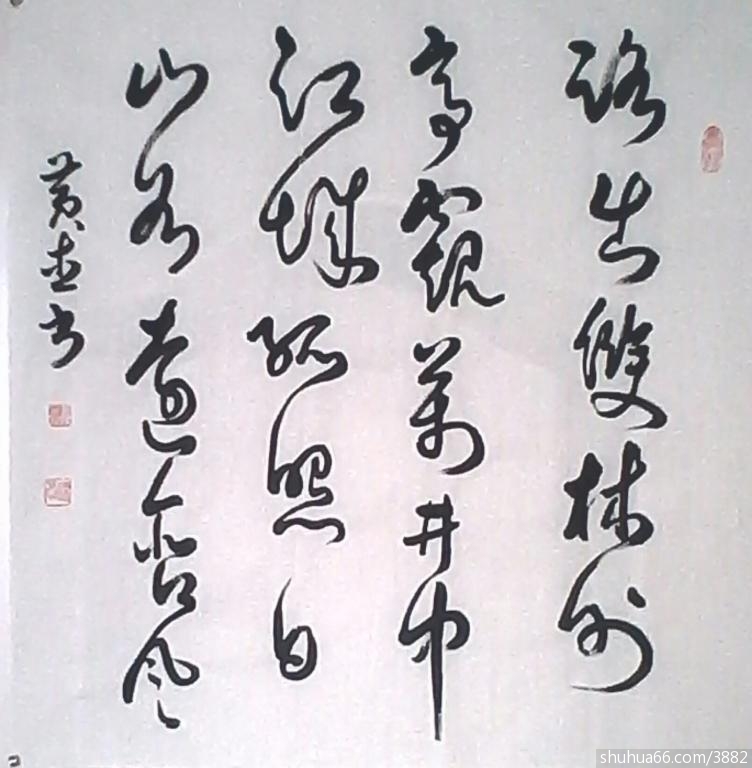 路出雙林外
亭窺萬井中
江城孤照日
山谷遠含風
黄 书
shuhua66.com/3882